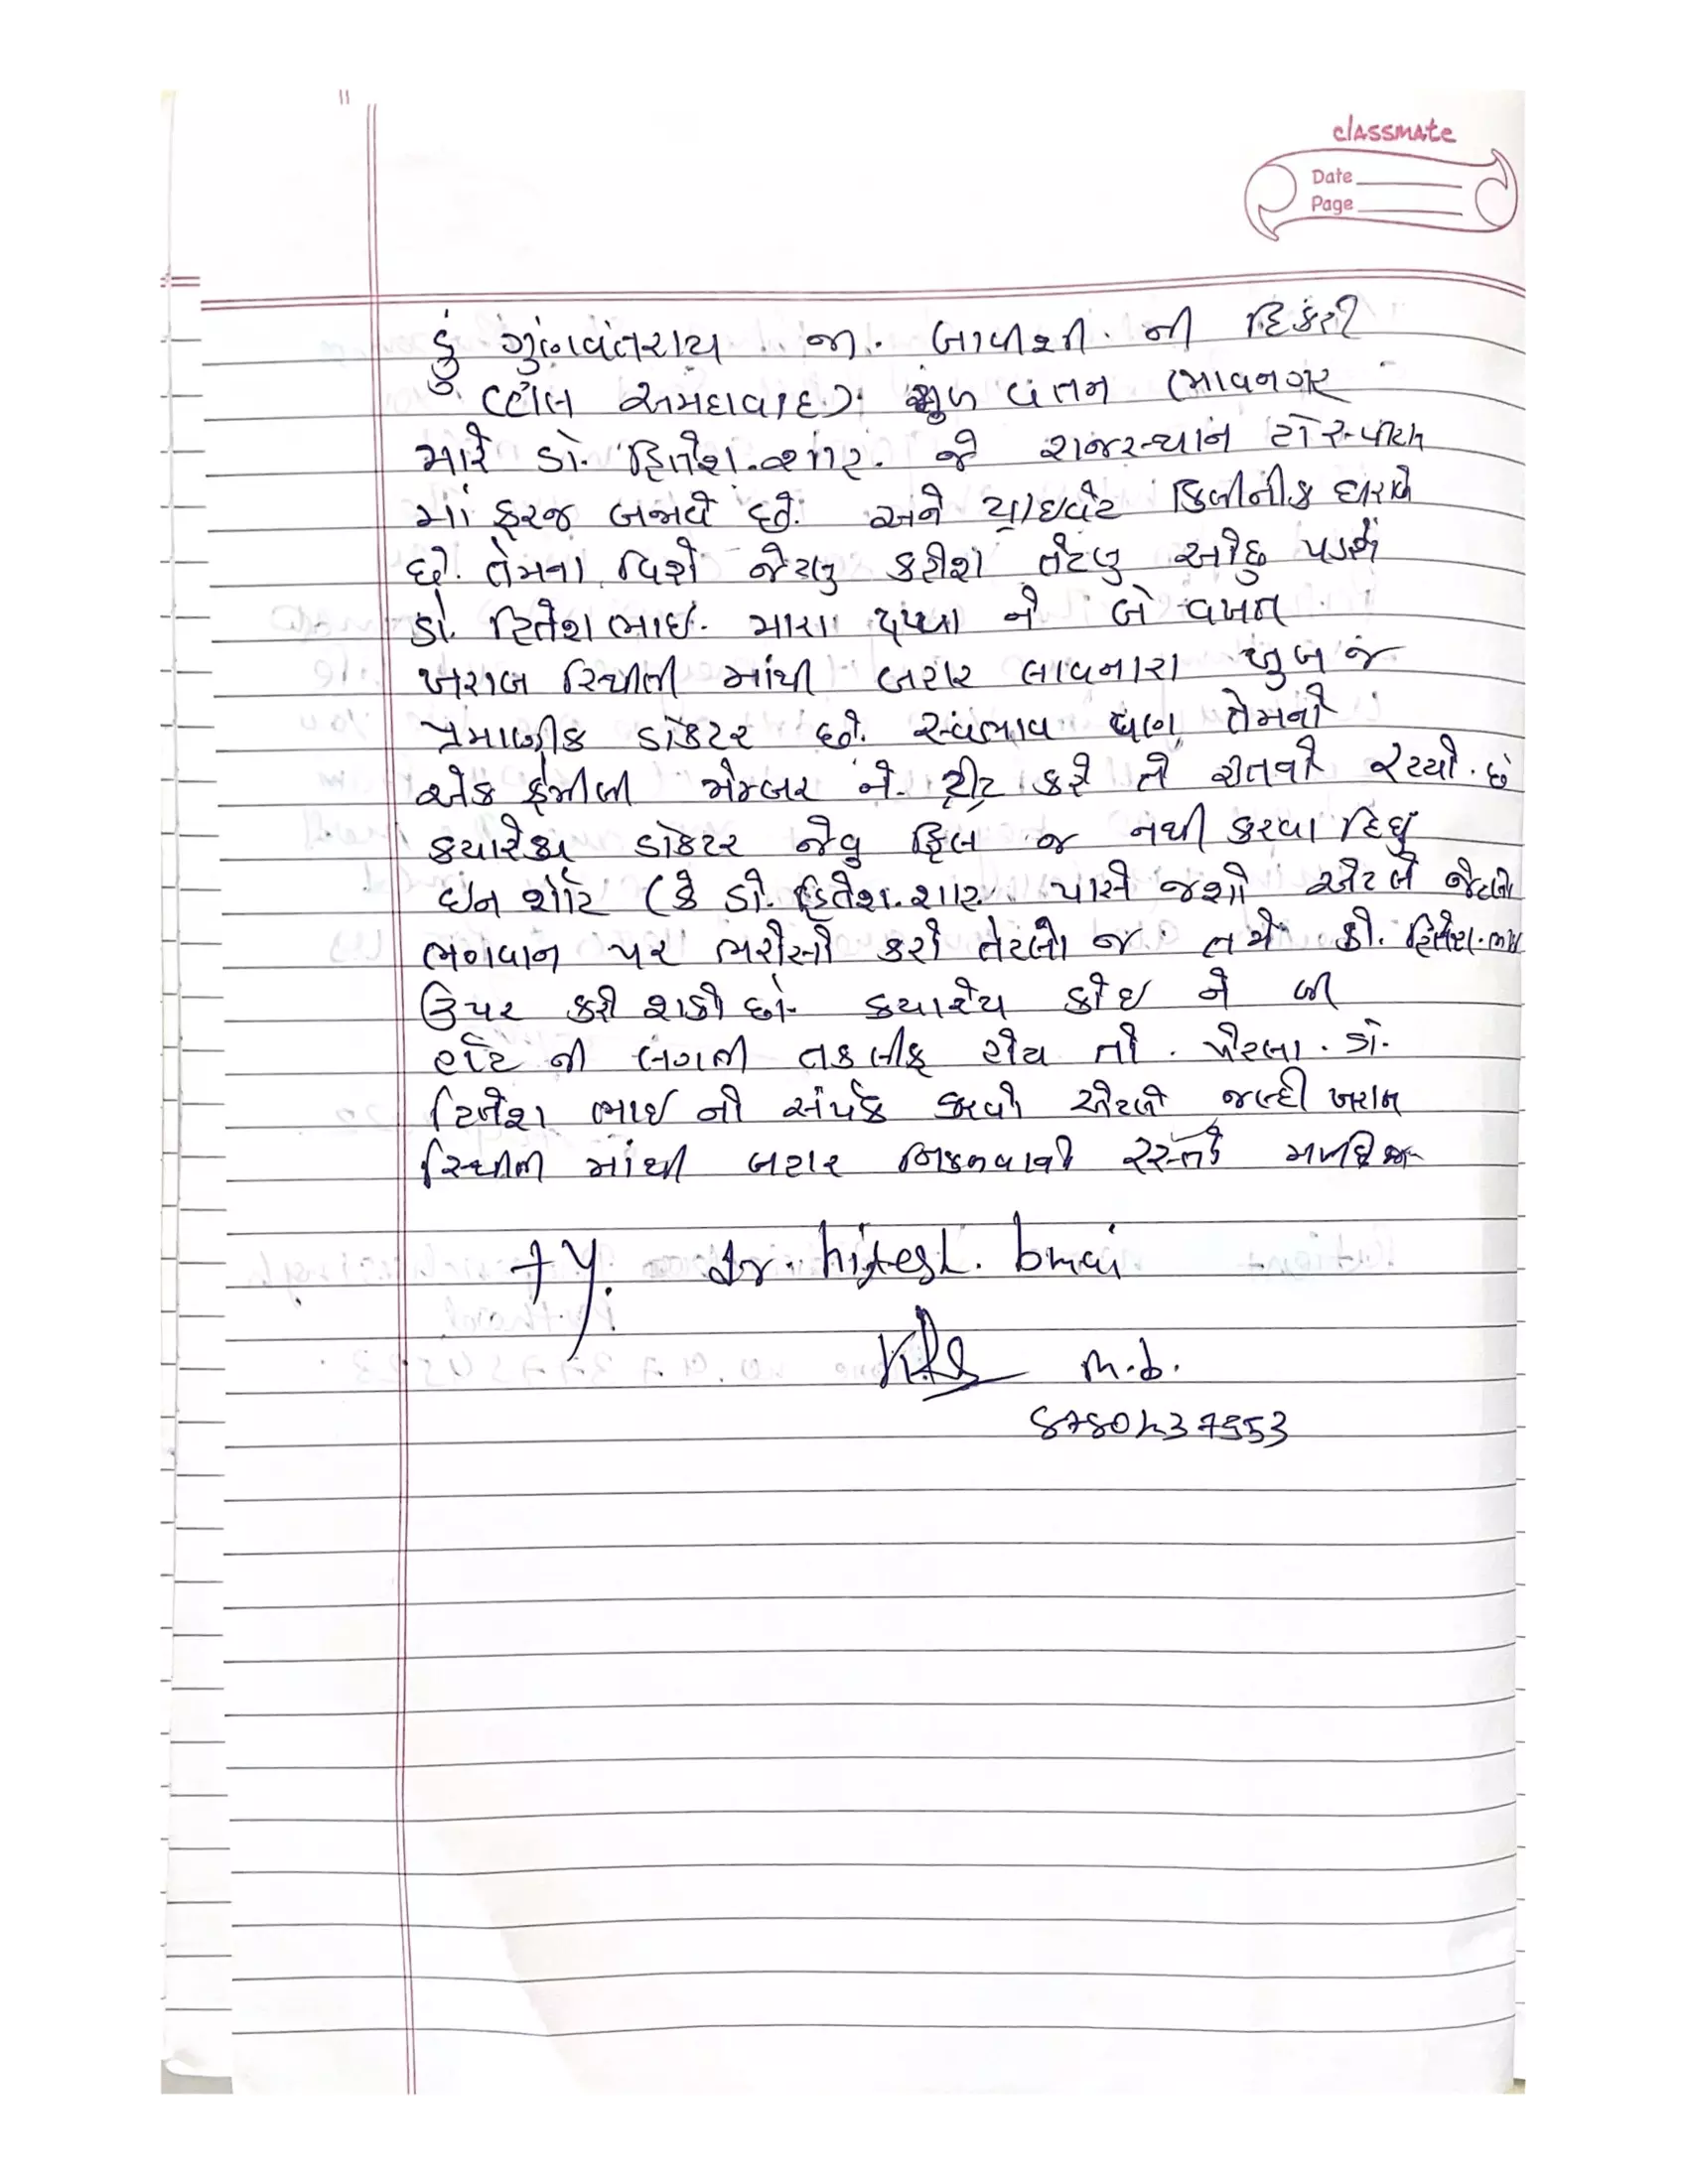 classmate
Date
Page
હું ગુણવંતરાય જી. બાવીશી. ની દિકરી
(હાલ અમદાવાદ) મુળ વતન (ભાવનગર
મારે ડો. હિતેશ.શાહ. જે રાજસ્થાન હોસ્પીટલ
માં ફરજ બજાવે છે. અને પ્રાઇવેટ કિલીનીક ધરાવે
છે. તેમના વિશે જેટલુ કહીશ તેટલુ ઓછુ પડશે
ડો. હિતેશ ભાઇ. મારા પપ્પા ને બે વખત
ખરાબ સ્થિીતી માંથી બહાર લાવનારા ખુબ જ
પ્રમાણીક ડૉકટર છે. સ્વભાવ પણ તેમનો
એક ફેમીલી મેમ્બર ને. ટ્રીટ કરે તે રીતનો રહ્યો.છે
કયારેય ડૉકટર જેવુ ફિલ જ નથી કરવા દિધુ
ઇન શોર્ટ (કે ડો. હિતેશ.શાહ. પાસે જશો એટલે જેટલો
ભગવાન પર ભરોસો કરો તેટલો જ તમે ડો. હિતેશ.ભાઇ
ઉપર કરી શકો છો. કયારેય કોઇ ને બી
હાર્ટ ની લગતી તકલીફ હોય તો. પેહલા. ડો.
હિતેશ ભાઇ નો સંપર્ક કરવો એટલે જલ્દી ખરાબ
સ્થિીતી માંથી બહાર નિકળવાનો રસ્તો
ty. dr. hitesh. bhai
m.b.